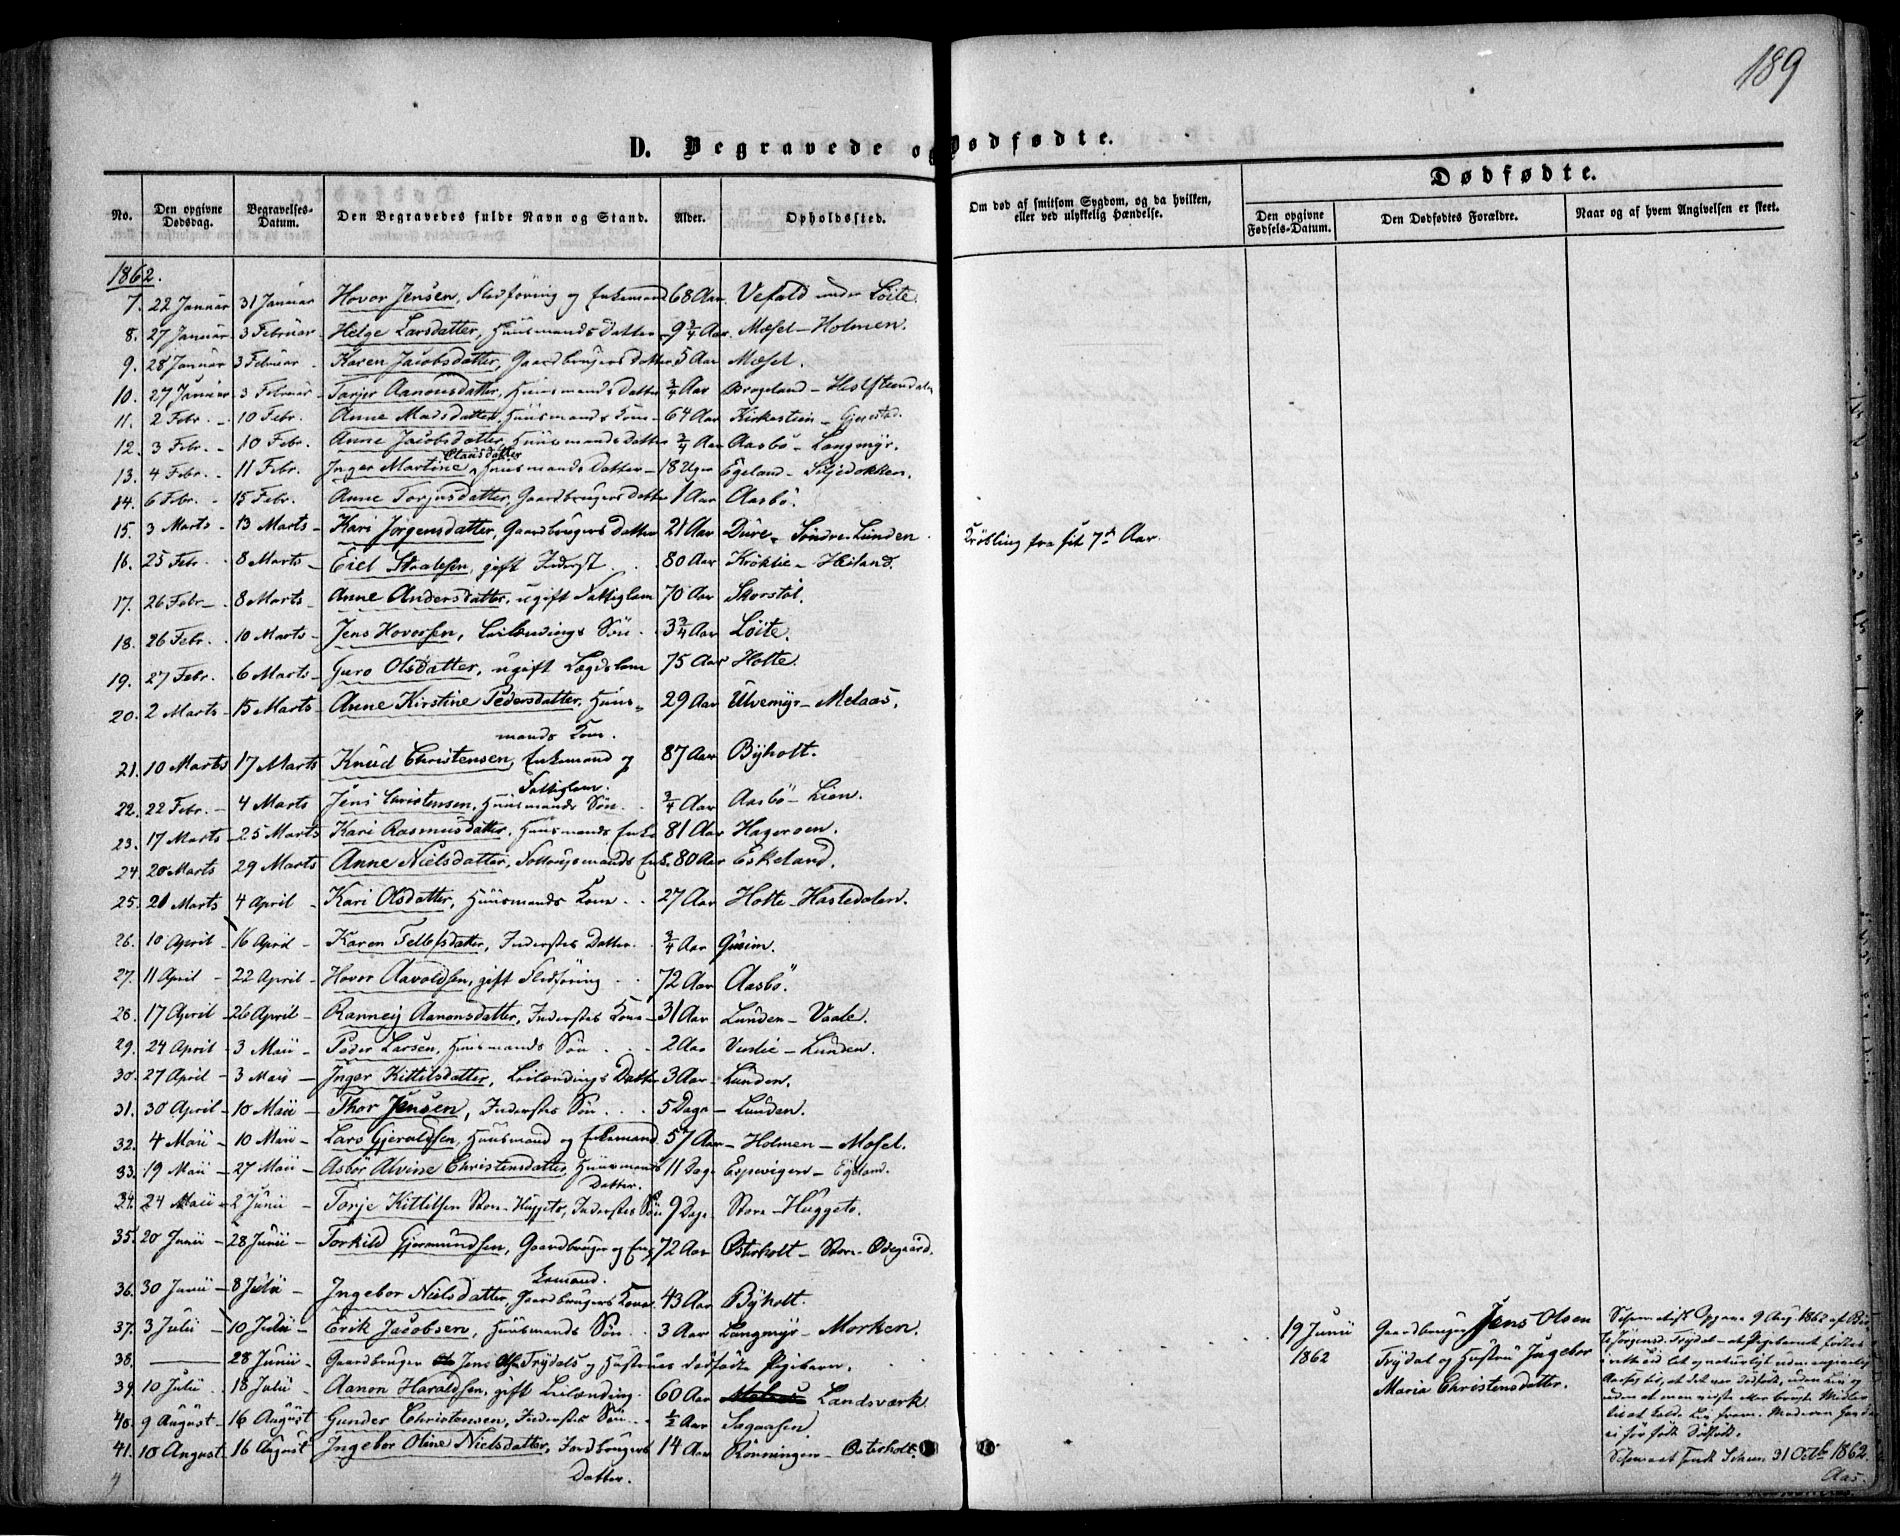 189
D. Begravede og Dødfødte.
No. Den opgivne Dødsdag. Begravelses-Datum. Den Begravedes fulde Navn og Stand. Alder. Opholdssted. Om død af smitsom Sygdom, og da hvilken, eller ved ulykkelig Hændelse. Dødfødte. Den opgivne Fødsels-Datum. Den Dødfødtes Forældre. Naar og af hvem Angivelsen er skeet.
1862.
7. 22 Januar 31 Januar Hovor Jensen, Fledføring og Enkemand 68 Aar Vefald under Löite.
8. 27 Januar 3 Februar Helge Larsdatter, Huusmands Datter 9 3/4 Aar Mæsel - Holmen.
9. 28 Januar 3 Februar Karen Jacobsdatter, Gaardbrugers datter 5 Aar Mæsel.
10. 27 Januar 3 Februar Tarjer Aanonsdatter, Huusmands Datter 3/4 Aar Brogeland -
11. 2 Febr. 10 Febr. Anne Madsdatter, Huusmands Kone 64 Aar Kirkestein - Gjerstad.
12. 3 Febr. 10 Febr. Anne Jacobsdatter, Huusmandsdatter 3/4 Aar Aasbö - Langmyr.
13. 4 Febr. 11 Febr. Inger Martine Olausdatter, Huusmands Datter 18 Uger Egeland - Siljedokken.
14. 6 Febr. 15 Febr. Anne Torjusdatter, Gaardbrugers datter 1 Aar Aasbö.
15. 3 Marts 13 Marts Kari Jörgensdatter, Gaardbrugers Datter 21 Aar Dure - Söndre Lunden Krøbling fra sit 7de Aar.
16. 25 Febr. 8 Marts Eiel gift Inderst 80 Aar Kröklie - Heiland.
17. 26 Febr. 8 Marts Anne Andersdatter, ugift Fattiglem 70 Aar Skorstöl.
18. 26 Febr. 10 Marts Jens Hovorsen, Leilændings Sön 3 3/4 Aar Löite.
19. 27 Febr. 6 Marts Guro Olsdatter, ugift Lægdslem 75 Aar Holte.
20. 2 Marts 15 Marts Anne Kirstine Pedersdatter, Huusmands Kone. 29 Aar Ulvemyr - Melaas.
21. 10 Marts 17 Marts Knud Christensen, Enkemand og Fattiglem. 87 Aar Byholt.
22. 22 Febr. 4 Marts Jens Christensen, Huusmands Sön 3/4 Aar Aasbö - Lien.
23. 17 Marts 25 Marts Kari Rasmusdatter, Huusmands Enke 81 Aar Hageroen.
24. 20 Marts 29 Marts Anne Nielsdatter, Enke 80 Aar Eskeland.
25. 21 Marts 4 April Kari Olsdatter, Huusmands Kone 27 Aar Holte - Hastedalen.
26. 10 April 16 April Karen Tellefsdatter, Inderstes Datter 3/4 Aar Gusim.
27. 11 April 22 April Hovor Aavoldsen, gift Fledföring 72 Aar Aasbö.
28. 17 April 26 April Ranneig Aanonsdatter, Inderstes Kone 31 Aar Lunden - Vaale.
29. 24 April 3 Maii Peder Larsen, Huusmands Sön 2 Aar Verlie - Lunden.
30. 27 April 3 Maii Inger Kittilsdatter, Leilændings Datter 3 Aar Lunden.
31. 30 April 10 Maii Thor Jensen, Inderstes Sön 5 Dage Lunden.
32. 4 Maii 10 Maii Lars Gjeruldsen, Huusmand og Enkemand 57 Aar Holmen - Mosel.
33. 19 Maii 27 Maii Asbör Alvine Christensdatter, Huusmands Datter. 11 Dage Espevigen - Egeland.
34. 24 Maii 2 Junii Torje Kittilsen Store-Huggeto, Inderstes Sön 9 Dage Store Huggeto.
35. 20 Junii 28 Junii Torkild Gjermundsen, Gaardbruger og Enkemand. 72 Aar Østerholt - Store Ødegaard.
36. 30 Junii 8 Julii Ingebor Nielsdatter, Gaardbrugers Kone 43 Aar Byholt.
37. 3 Julii 10 Julii Erik Jacobsen, Huusmands Sön 3 Aar Langmyr - Morken.
38. 28 Junii Gaardbruger Jens Ols. Trydals og Hustrues dødfødte Pigebarn. 19 Junii 1862 Gaardbruger Jens Olsen Trydal og Hustrü Ingebor Maria Christensdatter.
39. 10 Julii 18 Julii Aanon Haraldsen, gift Leilænding 60 Aar Landsværk
40. 9 August 16 August Gunder Christensen, Inderstes Sön 1/2 Aar Sagaasen.
41. 10 August 16 August Ingebor Oline Nielsdatter, Jordbrugers Datter. 14 Aar Rönningen - Østerholt.
31 Octbr 1862.
Aas.